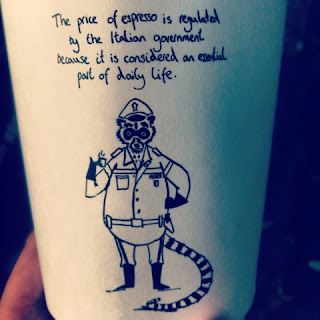 The price of espresso is regulated
by the Italian government
because it is considered an essential
part of daily life.